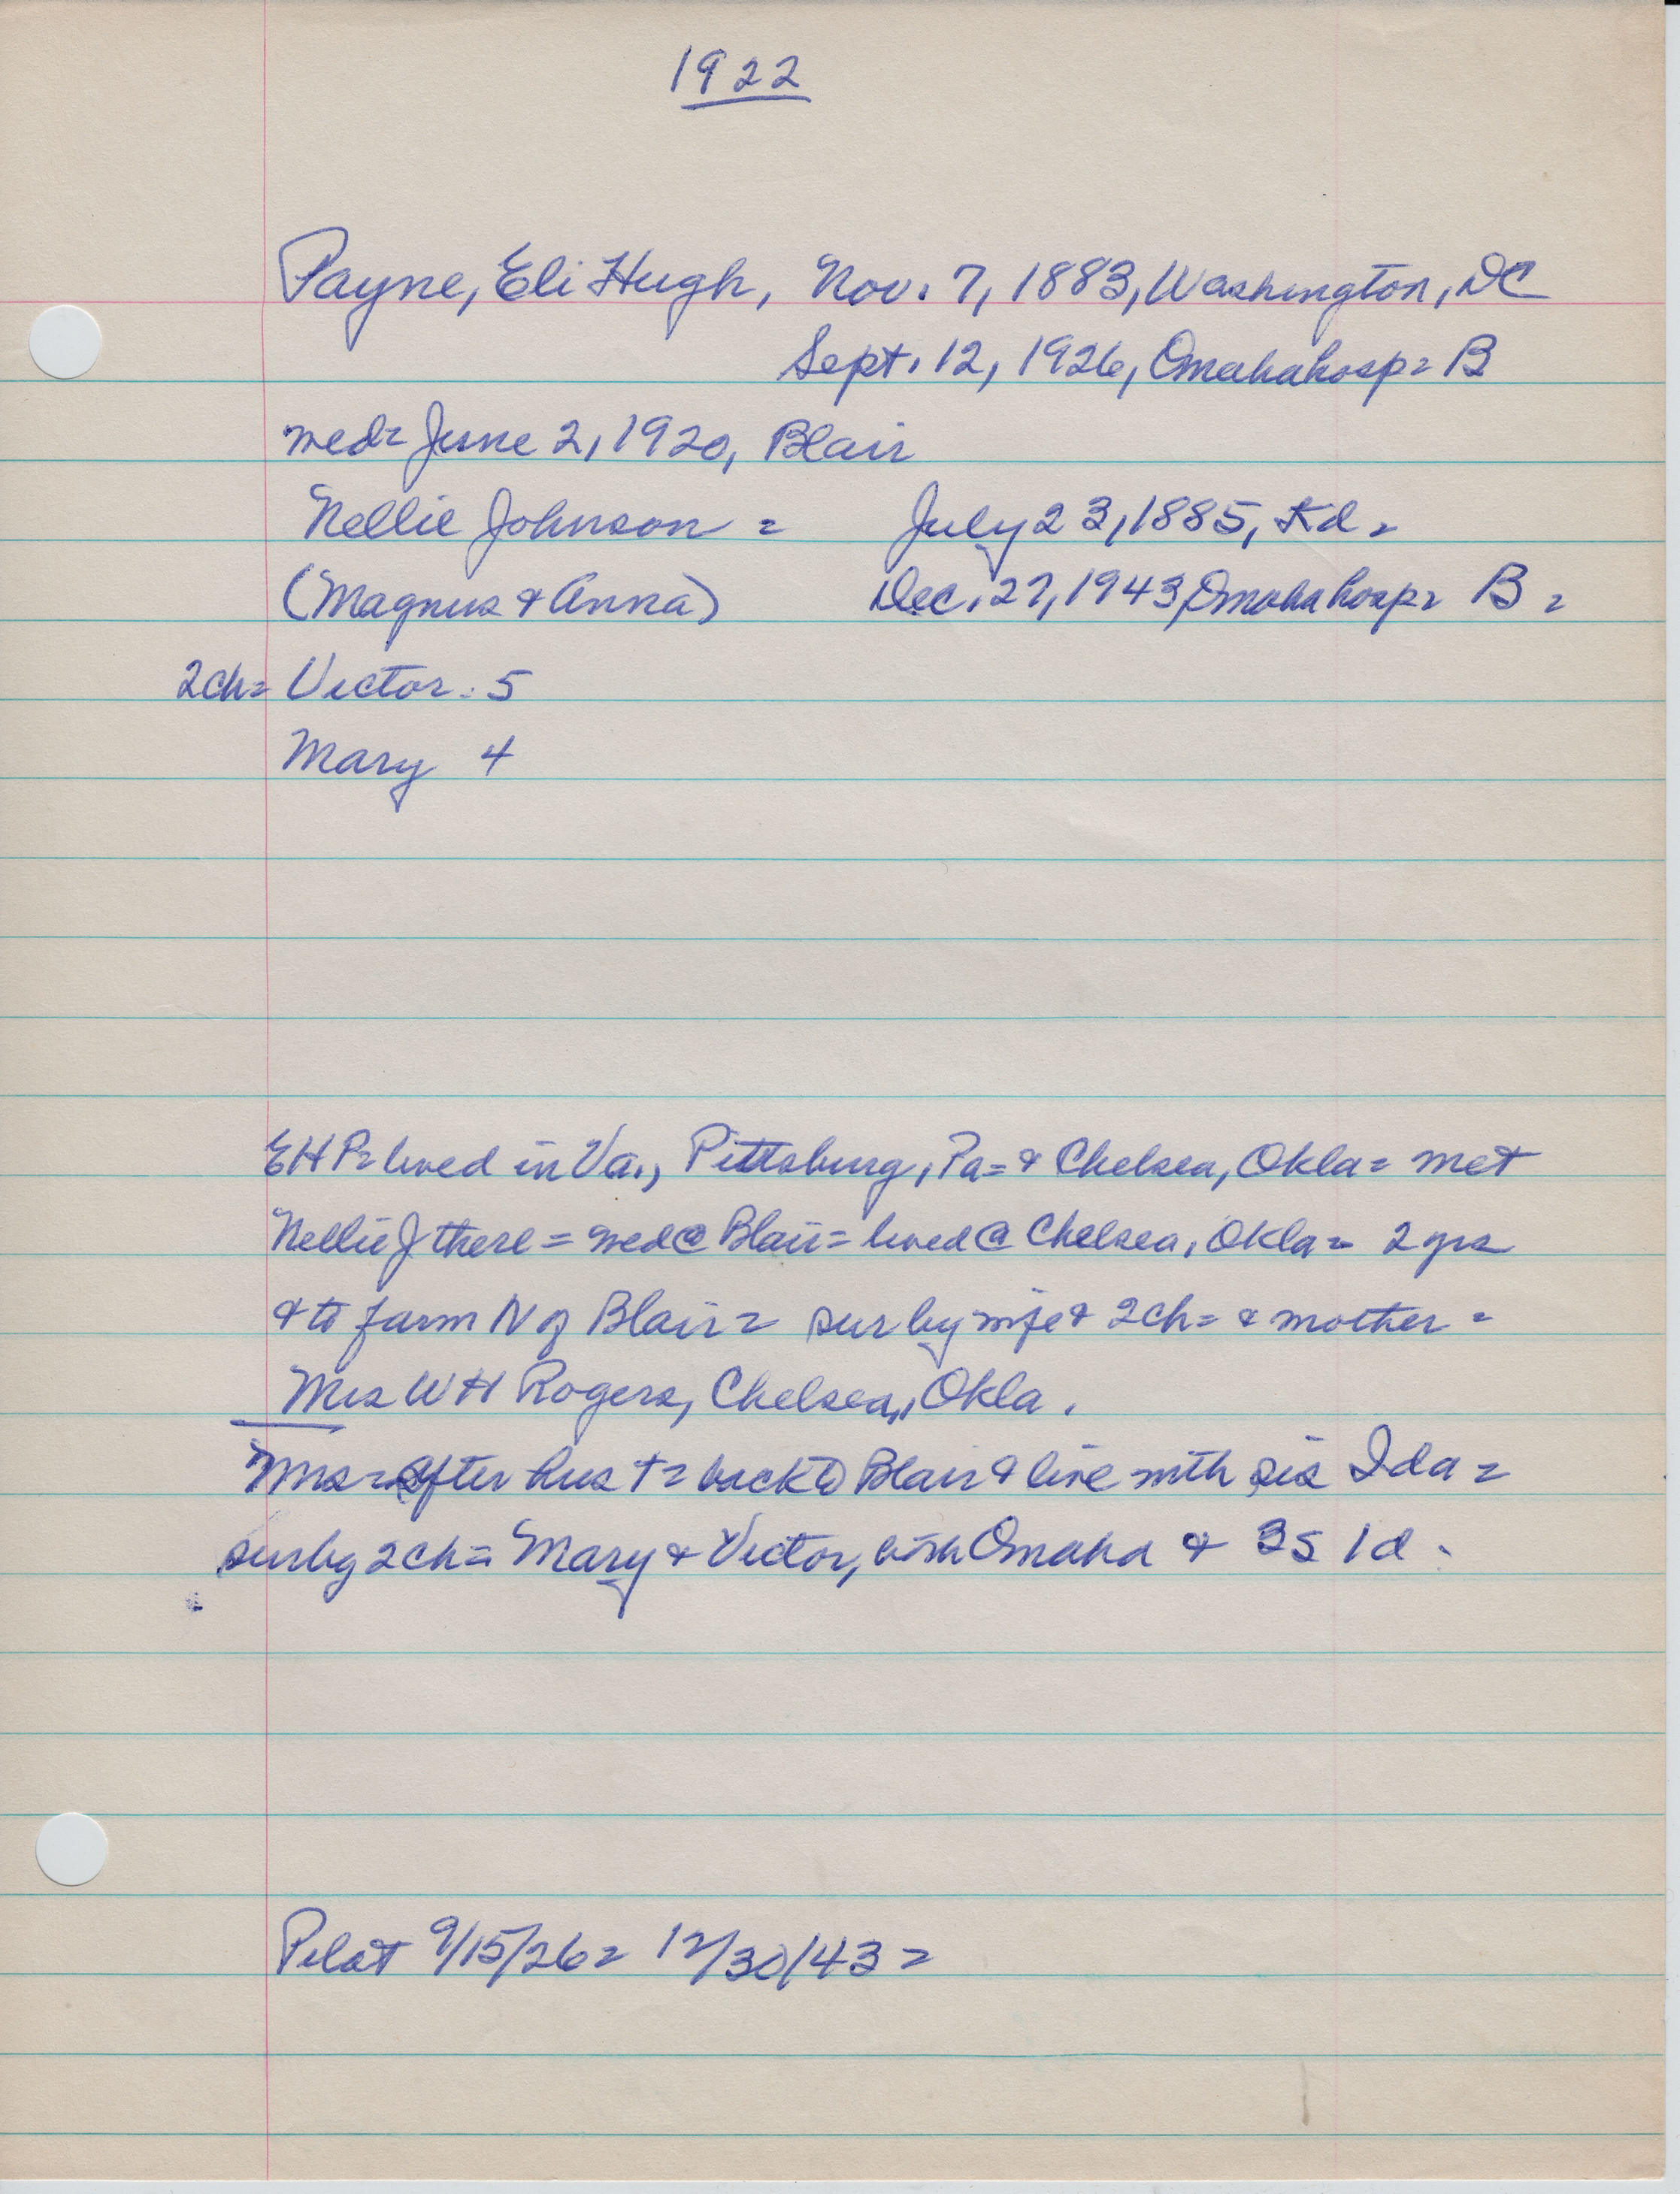 1922
Payne, Eli Hugh, Nov. 7, 1883, Washington, DC
Sept. 12, 1926, Omaha hosp = B
med = June 2, 1920, Blair
Nellie Johnson = July 23, 1885, Kd =
(Magnus & Anna) Dec. 27, 1943, Omaha hosp = B =
2ch = Victor . 5
Mary 4
EHP = lived in Va., Pittsburg, Pa = & Chelsea, Okla = met
Nellie J there = med @ Blair = lived @ Chelsea, Okla = 2 yrs
& to farm N of Blair = sur by wife & 2ch = & mother =
Mrs W H Rogers, Chelsea, Okla.
Mrs = after hus † = back to Blair & live with sis Ida =
sur by 2ch = Mary & Victor, both Omaha & 3S 1d .
Pilot 9/15/26 = 12/30/43 =